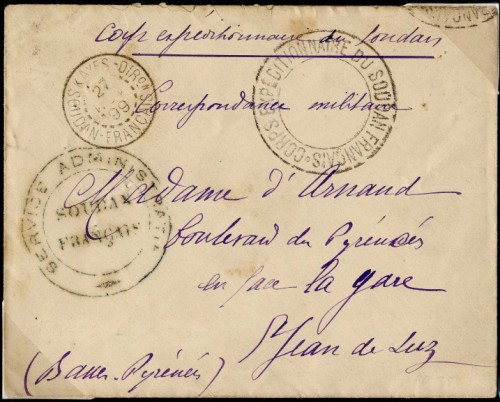 Corps expéditionnaire du Soudan
CORPS EXPÉDITIONNAIRE DU SOUDAN FRANÇAIS
KAYES
99
SOUDAN-FRANÇAIS
Correspondance militaire
SERVICE ADMINISTRATIF
SOUDAN
FRANÇAIS
Madame d'Arnaud
boulevard des Pyrénées
en face la gare
St Jean de Luz
(Basses-Pyrénées)